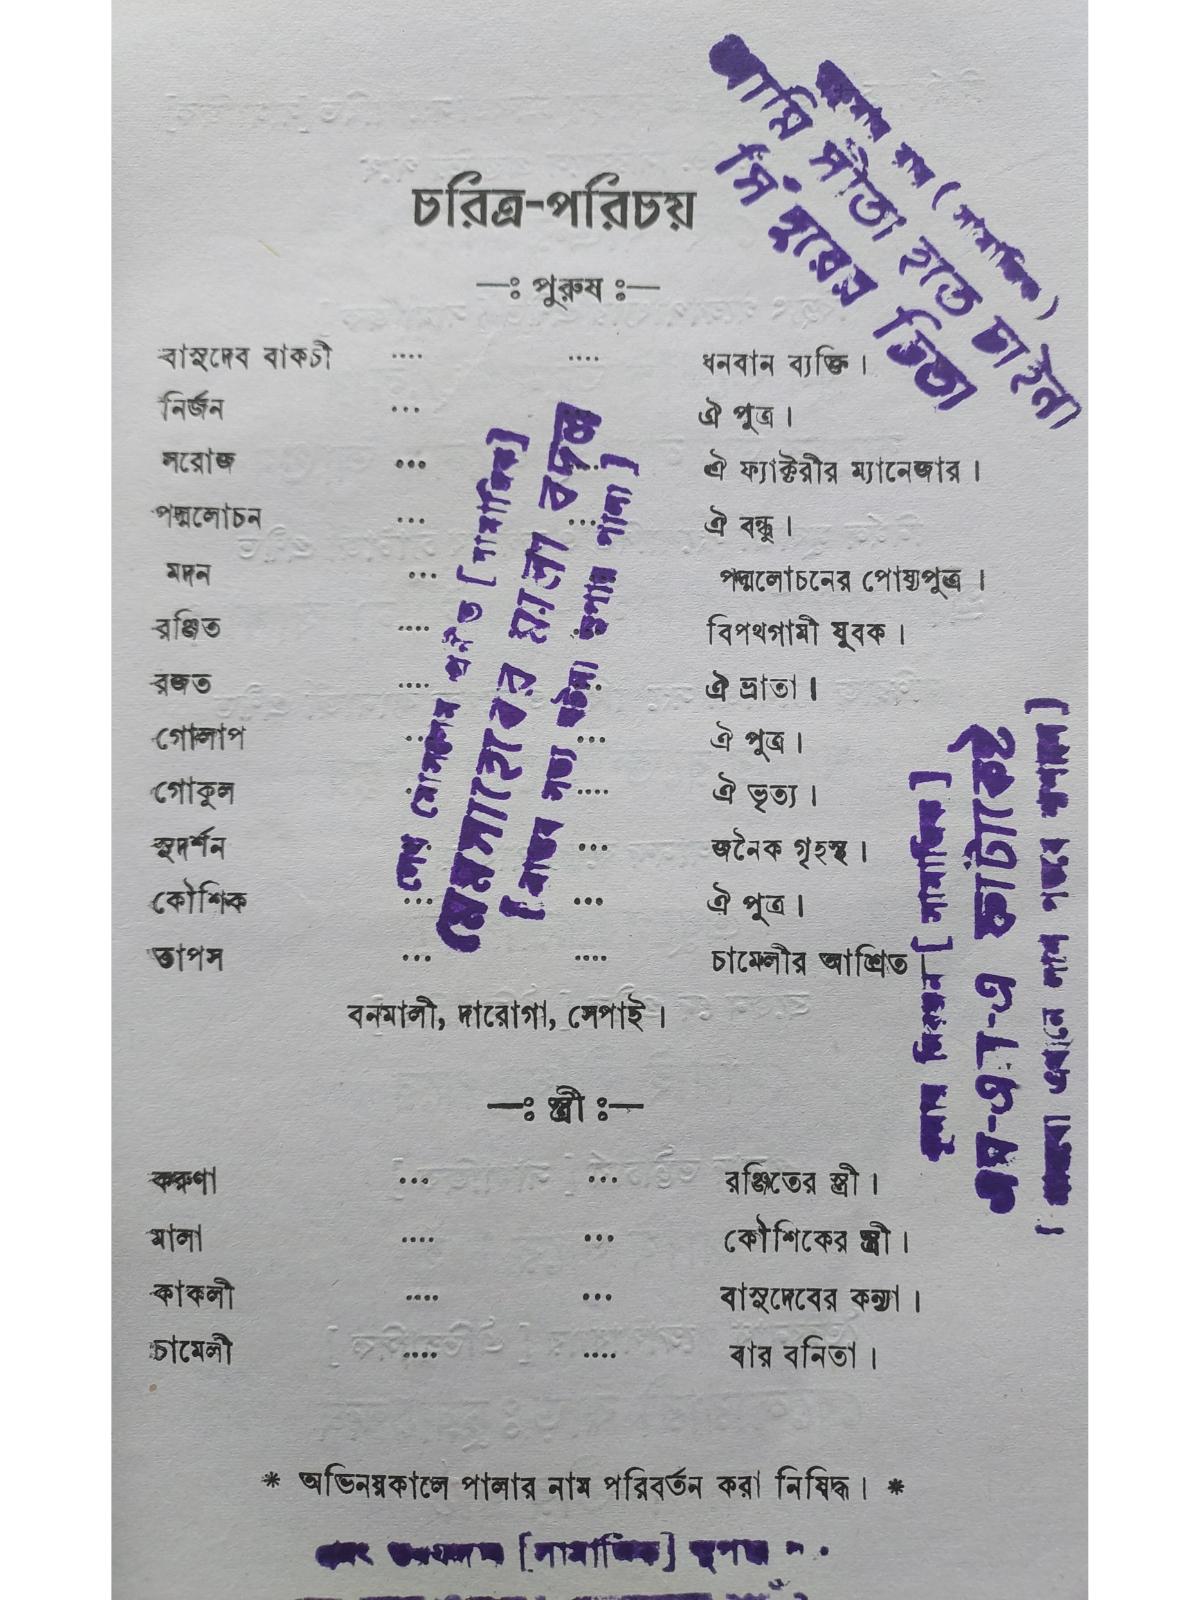 চরিত্র-পরিচয়
—ঃ পুরুষ ঃ—
বাসুদেব বাকচী .... .... ধনবান ব্যক্তি।
নির্জন ... ঐ পুত্র।
সরোজ ... ঐ ফ্যাক্টরীর ম্যানেজার।
পদ্মলোচন ... ... ঐ বন্ধু।
মদন ... পদ্মলোচনের পোষ্যপুত্র।
রঞ্জিত .... বিপথগামী যুবক।
রজত .... ঐ ভ্রাতা।
গোলাপ ... ... ঐ পুত্র।
গোকুল .... ঐ ভৃত্য।
সুদর্শন ... ... জনৈক গৃহস্থ।
কৌশিক ... ... ঐ পুত্র।
তাপস ... .... চামেলীর আশ্রিত
বনমালী, দারোগা, সেপাই।
—ঃ স্ত্রী ঃ—
করুণা ... ... রঞ্জিতের স্ত্রী।
মালা .... ... কৌশিকের স্ত্রী।
কাকলী .... ... বাসুদেবের কন্যা।
চামেলী .... .... বার বনিতা।
* অভিনয়কালে পালার নাম পরিবর্তন করা নিষিদ্ধ। *
[সামাজিক]
রায় (সামাজিক)
আমি সীতা হতে চাইনা
সিঁদুরের চিতা
[সামাজিক]
মেমসাহেবের মালা বদল
সত্য ঘটনা পালা]
[সামাজিক]
এম-এল-এ ফাটাকেষ্ট
এখানে লাশ